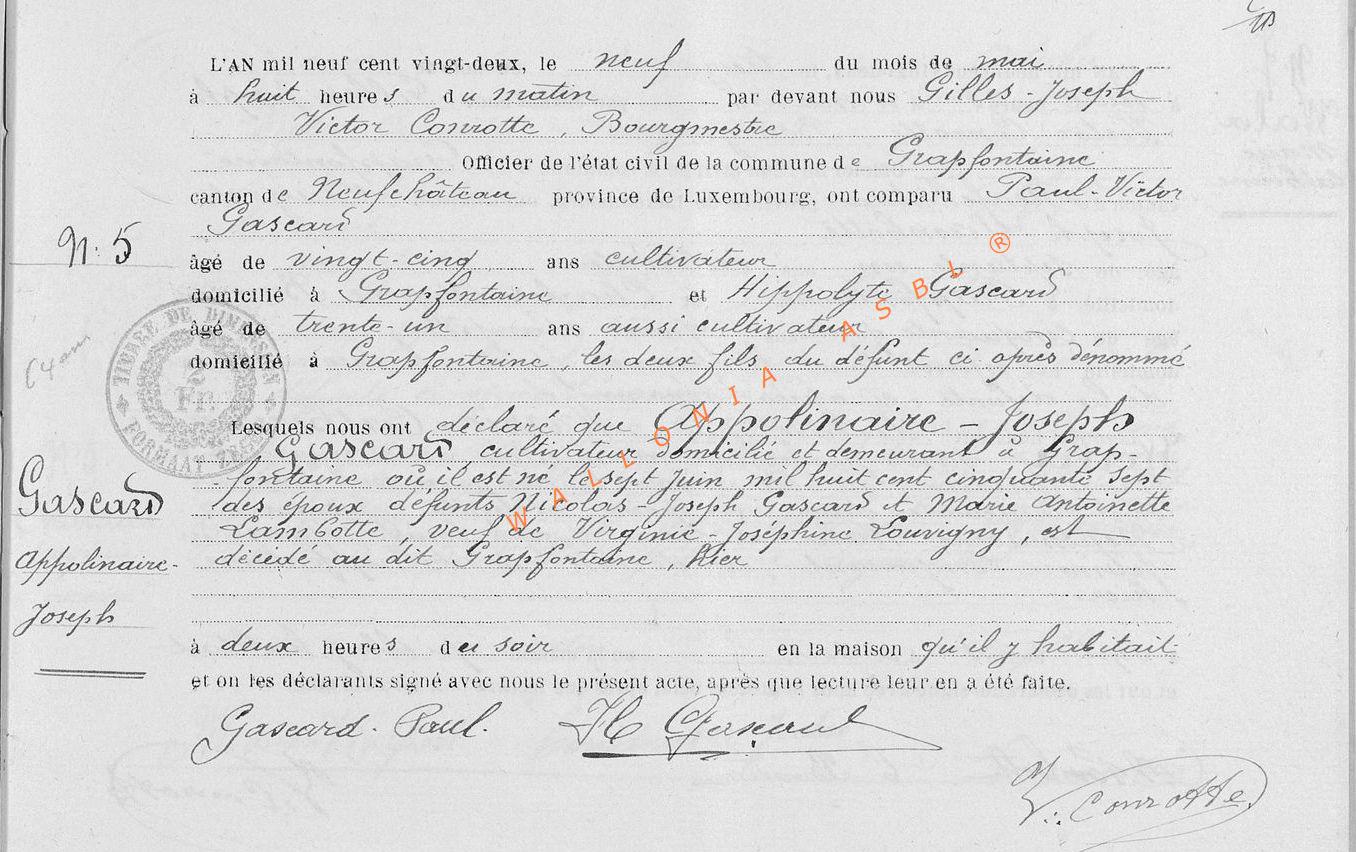 L'AN mil neuf cent vingt-deux, le neuf du mois de mai
à huit heures du matin par devant nous Gilles-Joseph
Victor Conrotte, Bourgmestre
Officier de l'état civil de la commune de Grapfontaine
canton de Neufchâteau province de Luxembourg, ont comparu Paul-Victor
Gascard
N. 5
âgé de vingt-cinq ans cultivateur
domicilié à Grapfontaine et Hippolyte Gascard
âgé de trente-un ans aussi cultivateur
64 ans
domicilié à Grapfontaine, les deux fils du défunt ci après dénommé
TIMBRE DE DIMENSION
2
FR.
FORMAAT ZEGEL
Lesquels nous ont déclaré que Appolinaire-Joseph
Gascard cultivateur domicilié et demeurant à Grap-
-fontaine où il est né le sept Juin mil huit cent cinquante sept
des époux défunts Nicolas-Joseph Gascard et Marie Antoinette
Lambotte, veuf de Virginie-Joséphine Louvigny, est
décédé au dit Grapfontaine, hier
Gascard
Appolinaire-
Joseph
à deux heures du soir en la maison qu'il y habitait
et on les déclarants signé avec nous le présent acte, après que lecture leur en a été faite.
Gascard Paul. H Gascard
V. Conrotte
WALLONIA ASBL ®